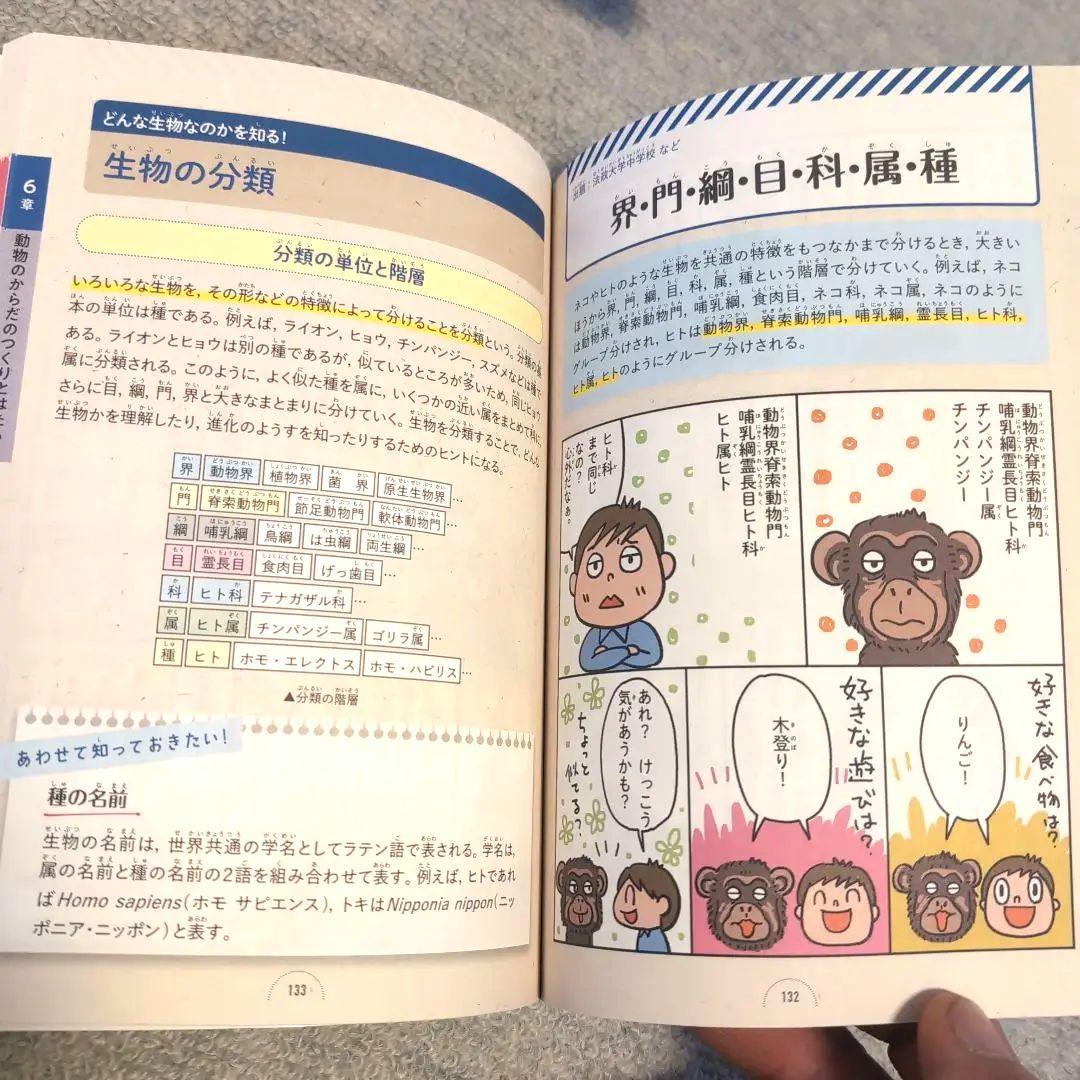 出題:法政大学中学校 など
界・門・綱・目・科・属・種
ネコやヒトのような生物を共通の特徴をもつなかまで分けるとき, 大きい
ほうから界, 門, 綱, 目, 科, 属, 種という階層で分けていく。例えば, ネコ
は動物界, 脊索動物門, 哺乳綱, 食肉目, ネコ科, ネコ属, ネコのように
グループ分けされ, ヒトは動物界, 脊索動物門, 哺乳綱, 霊長目, ヒト科,
ヒト属, ヒトのようにグループ分けされる。
動物界脊索動物門
哺乳綱霊長目ヒト科
チンパンジー属
チンパンジー
動物界脊索動物門
哺乳綱霊長目ヒト科
ヒト属ヒト
ヒト科
まで同じ
なの?
心外だなぁ。
好きな食べ物は?
りんご!
好きな遊びは?
木登り!
あれ? けっこう
気があうかも?
ちょっと似てる?
132
6
章
動物のからだのつくりとはたらき
どんな生物なのかを知る!
生物の分類
分類の単位と階層
いろいろな生物を, その形などの特徴によって分けることを分類という。分類の基
本の単位は種である。例えば, ライオン, ヒョウ, チンパンジー, スズメなどは種で
ある。ライオンとヒョウは別の種であるが, 似ているところが多いため, 同じヒョウ
属に分類される。このように, よく似た種を属に, いくつかの近い属をまとめて科に,
さらに目, 綱, 門, 界と大きなまとまりに分けていく。生物を分類することで, どんな
生物かを理解したり, 進化のようすを知ったりするためのヒントになる。
界 動物界 植物界 菌界 原生生物界 …
門 脊索動物門 節足動物門 軟体動物門 …
綱 哺乳綱 鳥綱 は虫綱 両生綱 …
目 霊長目 食肉目 げっ歯目 …
科 ヒト科 テナガザル科 …
属 ヒト属 チンパンジー属 ゴリラ属 …
種 ヒト ホモ・エレクトス ホモ・ハビリス …
▲分類の階層
あわせて知っておきたい!
種の名前
生物の名前は, 世界共通の学名としてラテン語で表される。学名は,
属の名前と種の名前の2語を組み合わせて表す。例えば, ヒトであれ
ばHomo sapiens(ホモ サピエンス), トキはNipponia nippon(ニッ
ポニア・ニッポン)と表す。
133